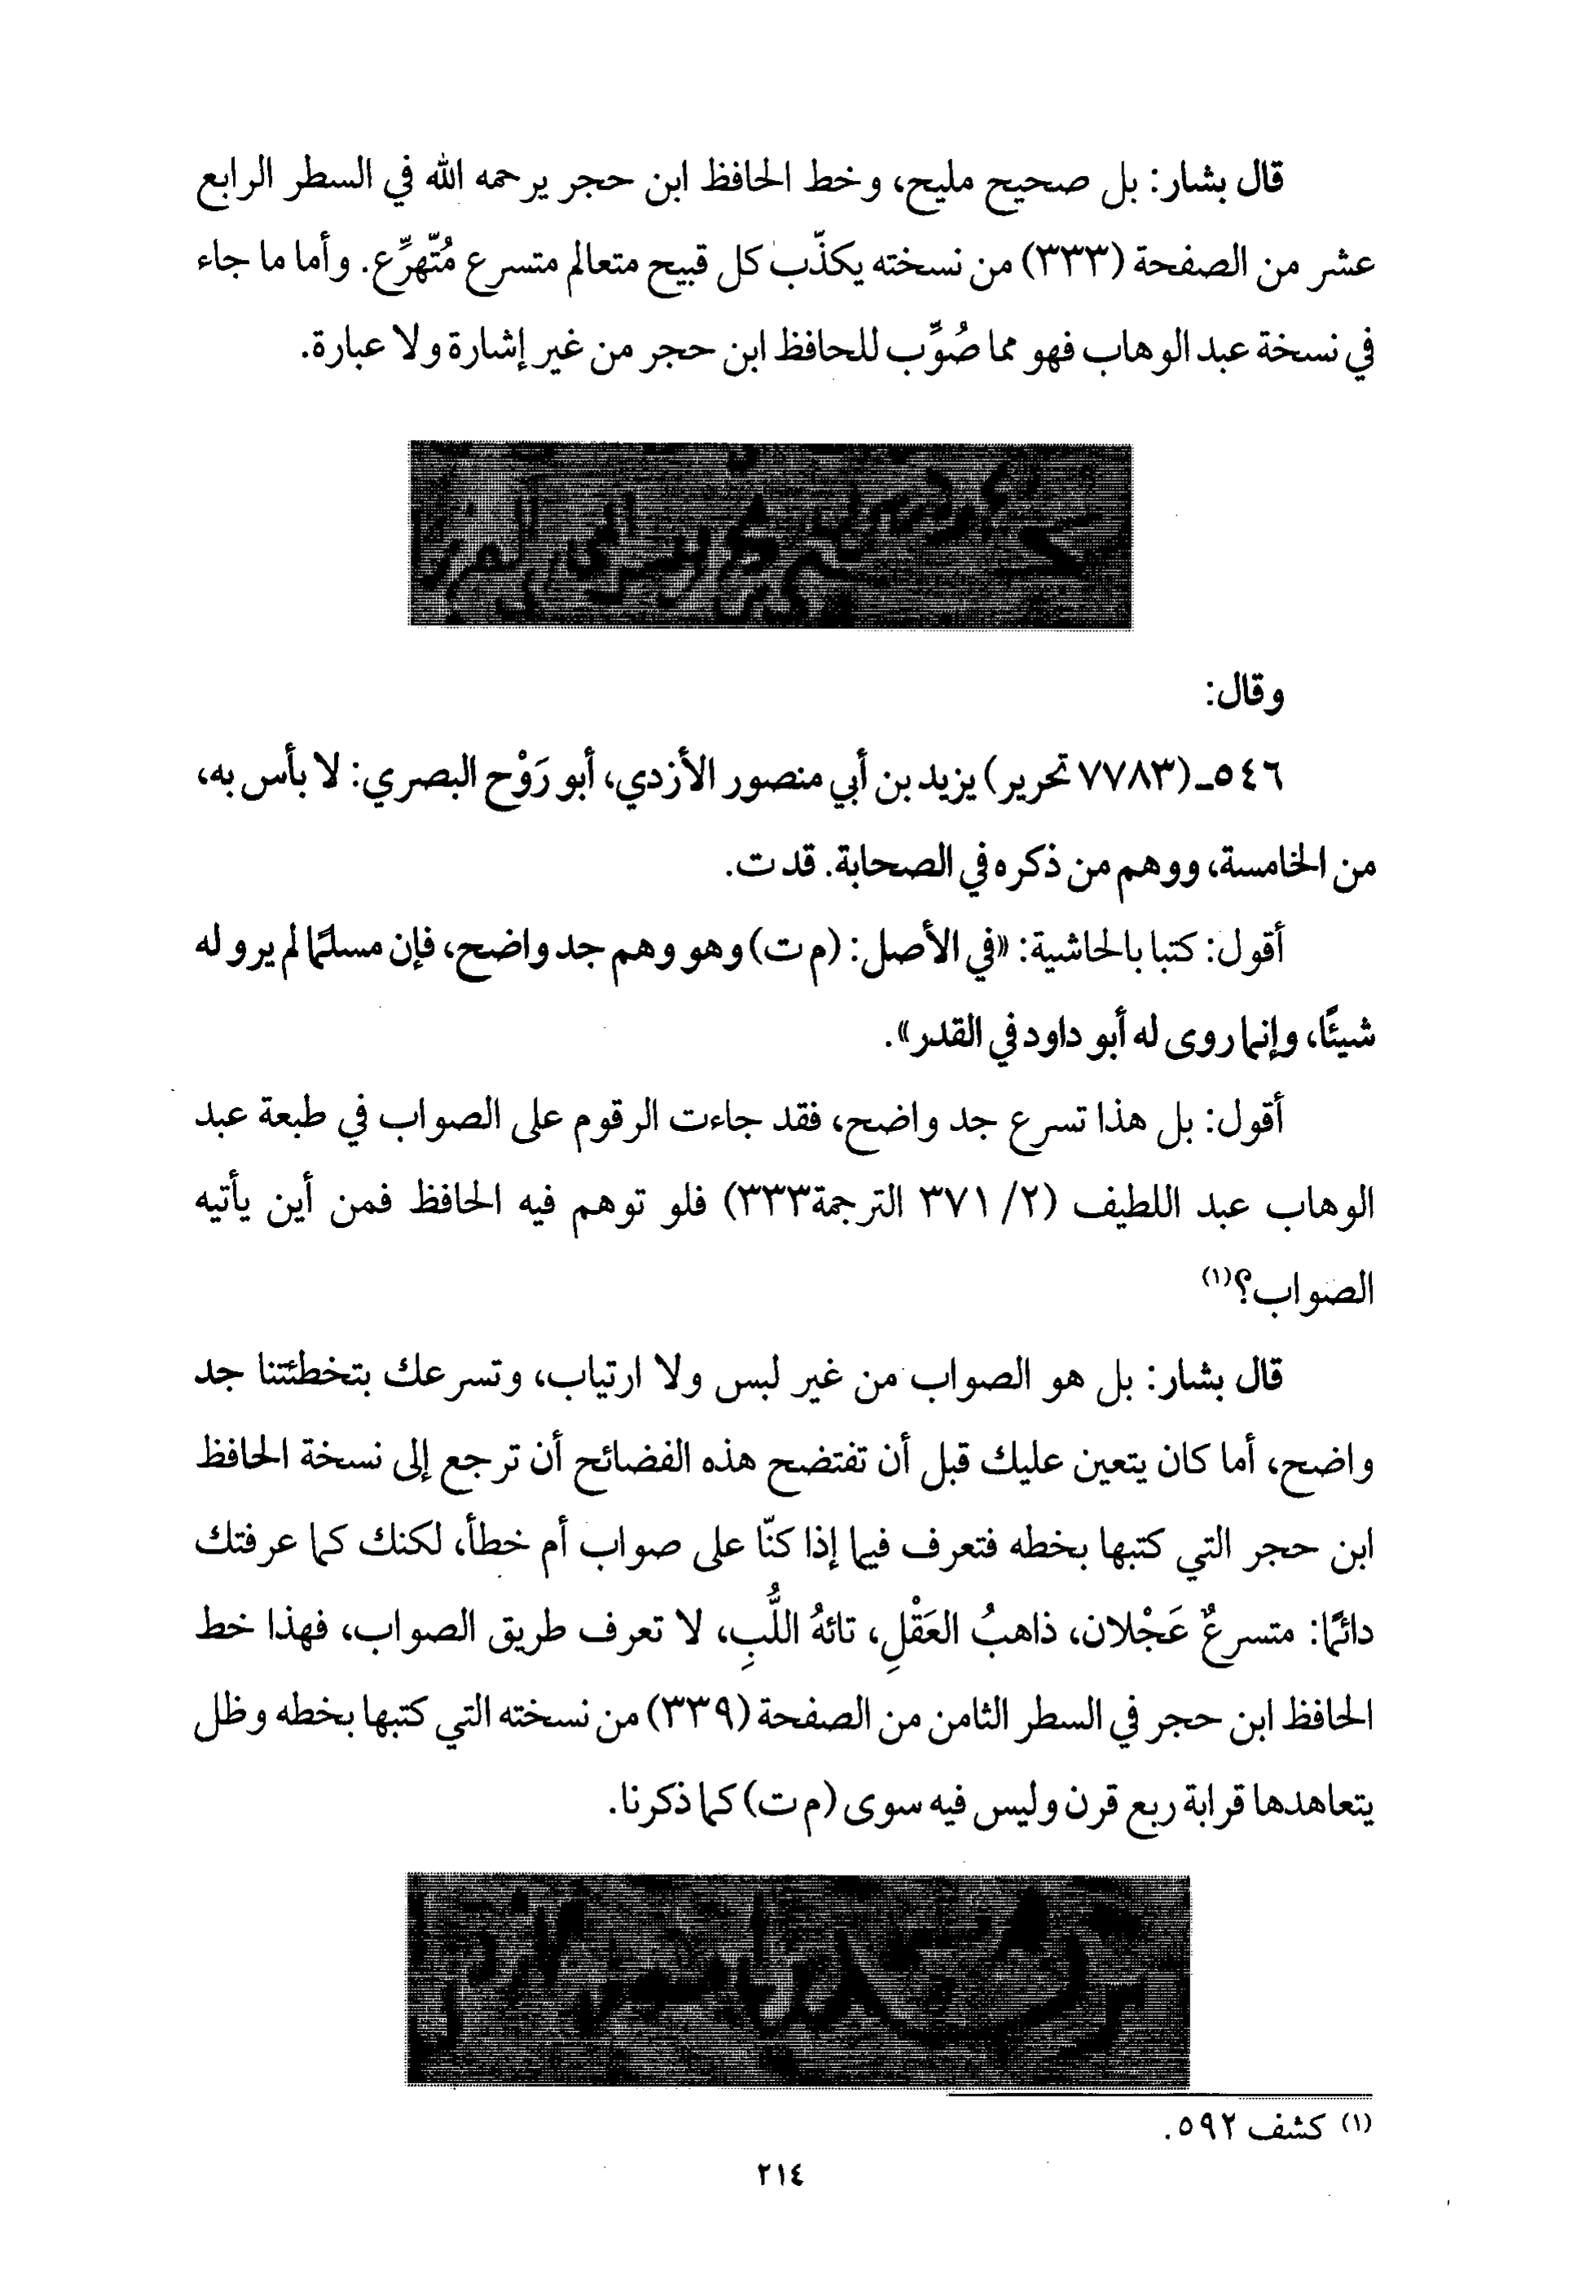 قال بشار: بل صحيح مليح، وخط الحافظ ابن حجر يرحمه الله في السطر الرابع
عشر من الصفحة (٣٣٣) من نسخته يكذّب كل قبيح متعالم متسرع مُتّهرِّع. وأما ما جاء
في نسخة عبد الوهاب فهو مما صُوِّب للحافظ ابن حجر من غير إشارة ولا عبارة.
وقال:
٥٤٦ـ (٧٧٨٣ تحرير) يزيد بن أبي منصور الأزدي، أبو رَوْح البصري: لا بأس به،
من الخامسة، ووهم من ذكره في الصحابة. قد ت.
أقول: كتبا بالحاشية: «في الأصل: (م ت) وهو وهم جد واضح، فإن مسلمًا لم يرو له
شيئًا، وإنما روى له أبو داود في القدر».
أقول: بل هذا تسرع جد واضح، فقد جاءت الرقوم على الصواب في طبعة عبد
الوهاب عبد اللطيف (٢/ ٣٧١ الترجمة٣٣٣) فلو توهم فيه الحافظ فمن أين يأتيه
الصواب؟(١)
قال بشار: بل هو الصواب من غير لبس ولا ارتياب، وتسرعك بتخطئتنا جد
واضح، أما كان يتعين عليك قبل أن تفتضح هذه الفضائح أن ترجع إلى نسخة الحافظ
ابن حجر التي كتبها بخطه فتعرف فيما إذا كنّا على صواب أم خطأ، لكنك كما عرفتك
دائمًا: متسرعٌ عَجْلان، ذاهبُ العَقْلِ، تائهُ اللُّبِ، لا تعرف طريق الصواب، فهذا خط
الحافظ ابن حجر في السطر الثامن من الصفحة (٣٣٩) من نسخته التي كتبها بخطه وظل
يتعاهدها قرابة ربع قرن وليس فيه سوى (م ت) كما ذكرنا.
(١) كشف ٥٩٢.
٢١٤